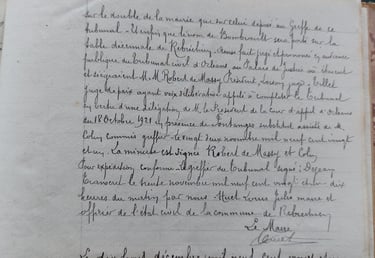 sur le double de la mairie que sur celui déposé au Greffe de ce
tribunal - Et enfin que le nom de Gambrault sera porté sur la
table décennale de Rebréchien. Ainsi fait jugé et prononcé en audience
publique du tribunal civil d'Orléans au Palais de Justice où étaient
et siégeaient M.M. Robert de Massy Président, juge
Juge de paix ayant voix délibérative appelé à compléter le tribunal
en vertu d'une délégation de M. le Président de la Cour d'appel d'Orléans
du 18 Octobre 1921 en présence de substitut assisté de M.
Colin commis greffier le vingt deux novembre mil neuf cent vingt
et un. La minute est signée Robert de Massy et Colin
Pour expédition conforme le greffier du Tribunal signé:
Transcrit le trente novembre mil neuf cent vingt et un dix
heures du matin par nous Huet Louis Jules maire et
officier de l'état civil de la commune de Rebréchien
Le Maire
Huet
Le décembre mil neuf cent